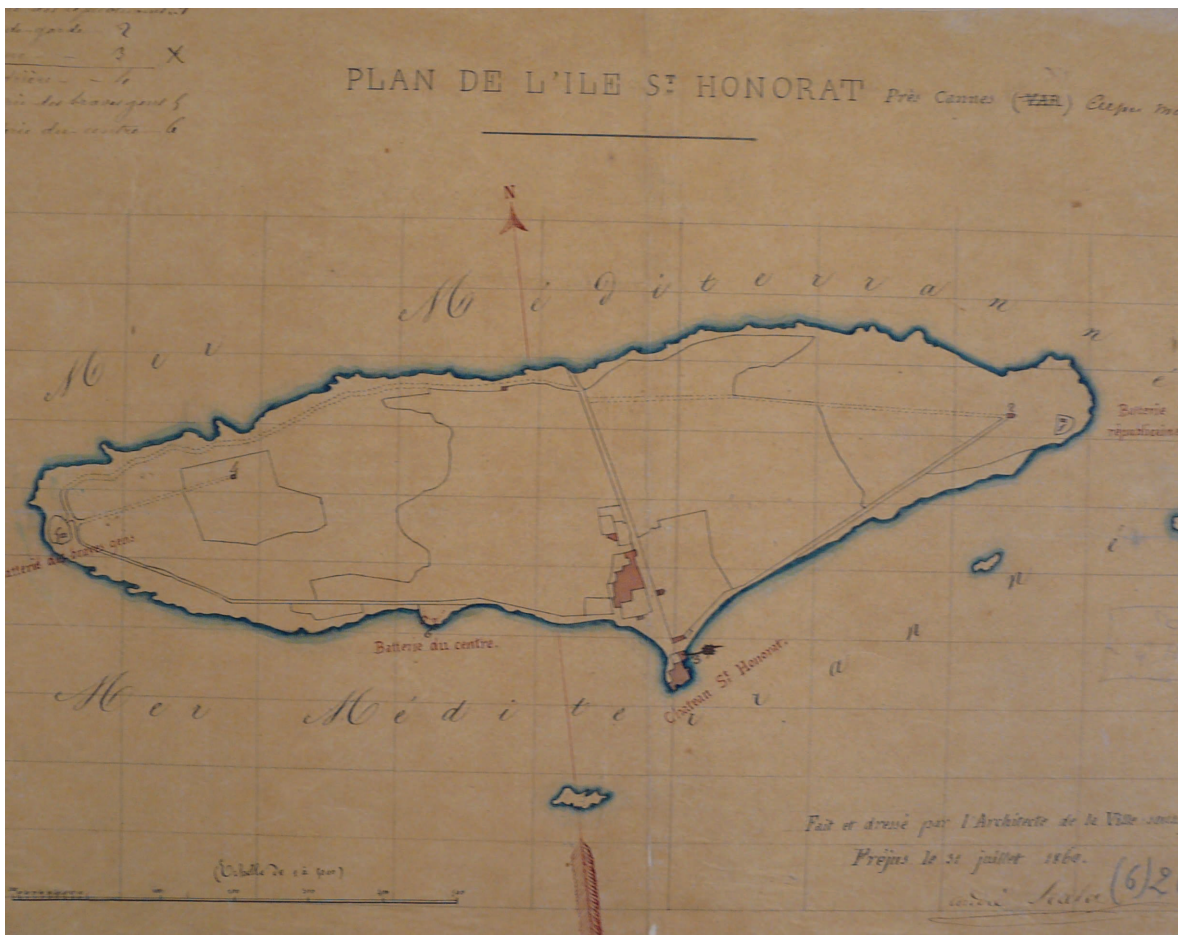 de garde 2
3 X
des braves gens 5
du centre 6
PLAN DE L'ILE ST HONORAT Près Cannes (VAR)
N
Mer Méditerrannée
Batterie
républicaine
2
4
5
Batterie des braves gens
Batterie du centre.
3
Château St Honorat.
Mer Méditerrannée
Fait et dressé par l'Architecte de la Ville
Fréjus le 31 juillet 1860.
(Echelle de 1 à 5000)
(6) 2